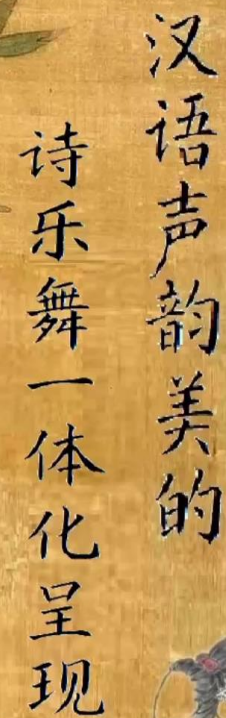 汉语声韵美的
诗乐舞一体化呈现